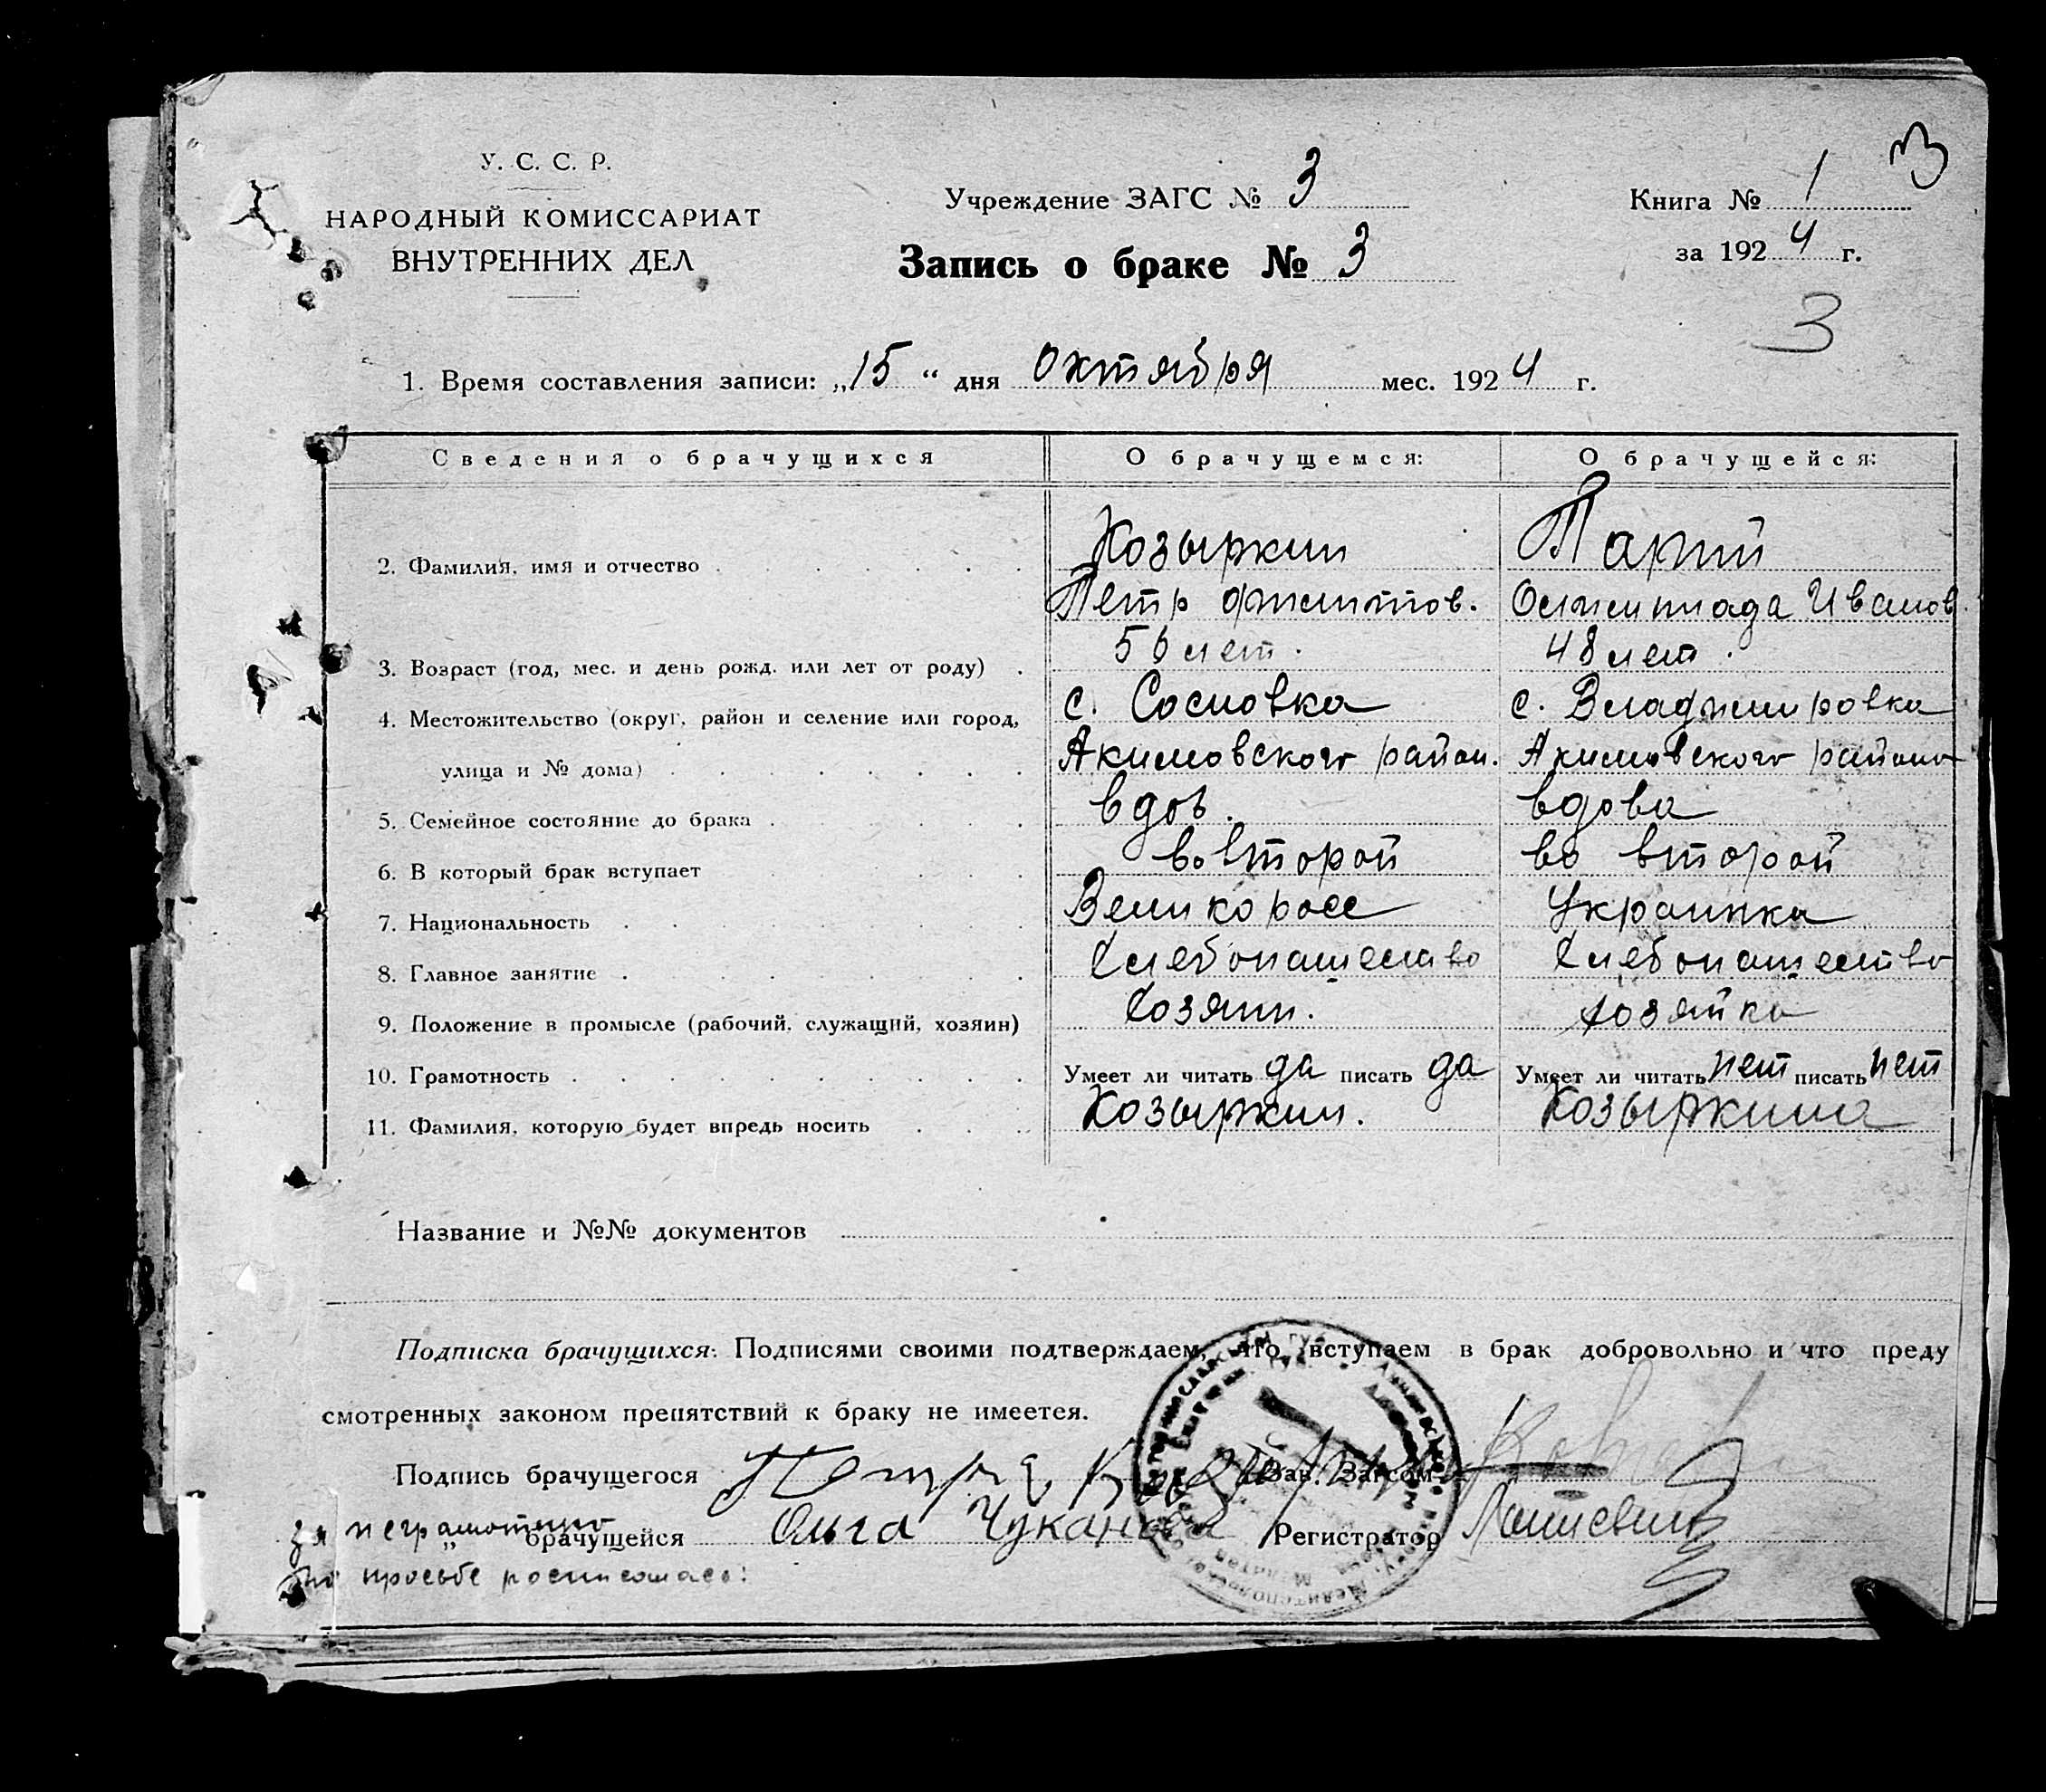 3
У. С. С. Р.
НАРОДНЫЙ КОМИССАРИАТ
ВНУТРЕННИХ ДЕЛ
Учреждение ЗАГС № 3
Запись о браке № 3
Книга № 1
за 1924 г.
3
1. Время составления записи: „15“ дня октября мес. 1924 г.
Сведения о брачущихся О брачущемся: О брачущейся:
2. Фамилия, имя и отчество Козыркин
Петр
Иванов.
3. Возраст (год, мес. и день рожд. или лет от роду) 56 лет. 48 лет.
4. Местожительство (округ, район и селение или город, с. Сосновка с. Владимировка
улица и № дома) Акимовского район. Акимовского района
5. Семейное состояние до брака вдов. вдова
6. В который брак вступает во второй во второй
7. Национальность Великоросс Украинка
8. Главное занятие Хлебопашество Хлебопашество
9. Положение в промысле (рабочий, служащий, хозяин) Хозяин. хозяйка
10. Грамотность Умеет ли читать да писать да Умеет ли читать нет писать нет
11. Фамилия, которую будет впредь носить Козыркин. Козыркина
Название и №№ документов
Подписка брачущихся: Подписями своими подтверждаем, что вступаем в брак добровольно и что преду
смотренных законом препятствий к браку не имеется.
Подпись брачущегося Петр Зав. Загсом
за неграмотную „ брачущейся Ольга Чуканова Регистратор
по просьбе росписалась: